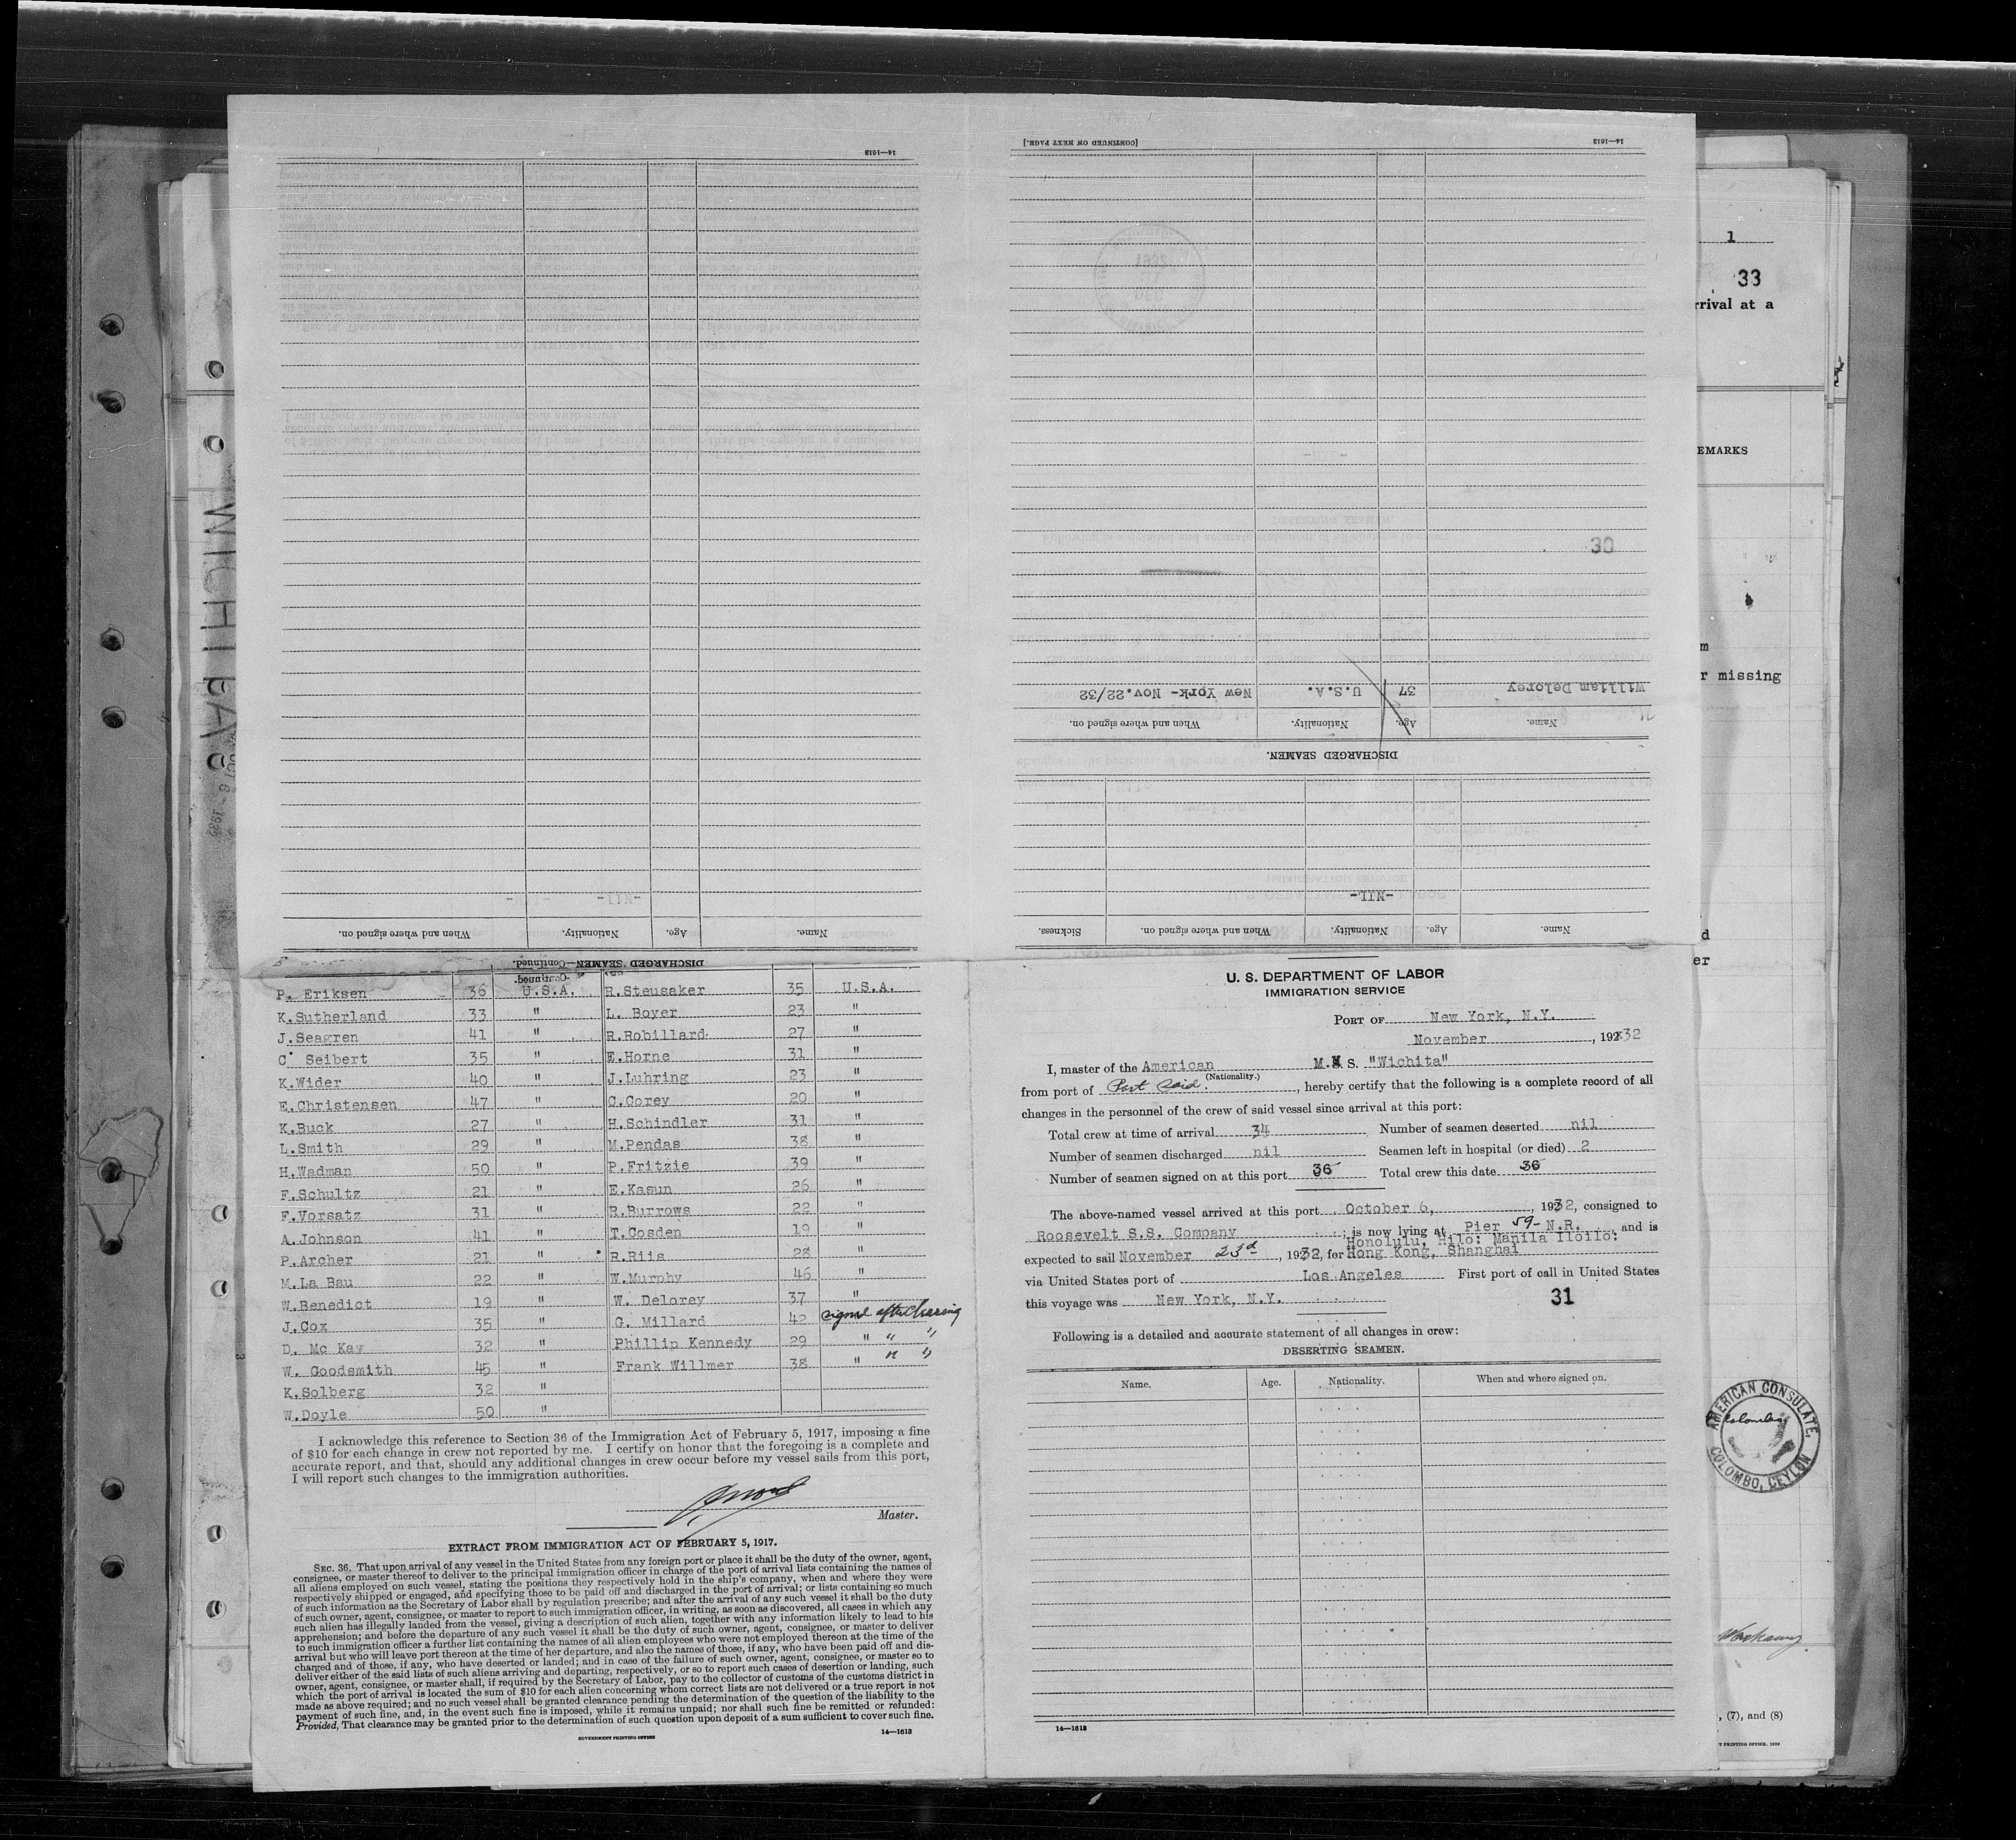 14—1613
DISCHARGED SEAMEN—Continued.
Name. Age. Nationality. When and where signed on.
-NIL-
[CONTINUED ON NEXT PAGE.]
14—1613
30
William Delorey 37 U.S.A. New York- Nov.22/32
Name. Age. Nationality. When and where signed on.
DISCHARGED SEAMEN.
-NIL-
Name. Age. Nationality. When and where signed on. Sickness.
1
33
rrival at a
EMARKS
m
r missing
d
er
WICHITA
P. Eriksen 36 U.S.A. R.Steusaker 35 U.S.A.
K.Sutherland 33 " L. Boyer 23 "
J.Seagren 41 " R.Robillard 27 "
C. Seibert 35 " E.Horne 31 "
K.Wider 40 " J.Luhring 23 "
E.Christensen 47 " C.Corey 20 "
K.Buck 27 " H.Schindler 31 "
L.Smith 29 " M.Pendas 38 "
H.Wadman 50 " P.Fritzie 39 "
F.Schultz 21 " E.Kasun 26 "
F.Vorsatz 31 " R.Burrows 22 "
A.Johnson 41 " T.Cosden 19 "
P.Archer 21 " R.Riis 28 "
M.La Bau 22 " W.Murphy 46 "
W.Benedict 19 " W. Delorey 37 "
J.Cox 35 " G. Millard 42 signed after clearing
D. Mc Kay 32 " Phillip Kennedy 29 " " "
W. Goodsmith 45 " Frank Willmer 38 " " "
K.Solberg 32 "
W.Doyle 50 "
I acknowledge this reference to Section 36 of the Immigration Act of February 5, 1917, imposing a fine
of $10 for each change in crew not reported by me. I certify on honor that the foregoing is a complete and
accurate report, and that, should any additional changes in crew occur before my vessel sails from this port,
I will report such changes to the immigration authorities.
Master.
EXTRACT FROM IMMIGRATION ACT OF FEBRUARY 5, 1917.
SEC. 36. That upon arrival of any vessel in the United States from any foreign port or place it shall be the duty of the owner, agent,
consignee, or master thereof to deliver to the principal immigration officer in charge of the port of arrival lists containing the names of
all aliens employed on such vessel, stating the positions they respectively hold in the ship's company, when and where they were
respectively shipped or engaged, and specifying those to be paid off and discharged in the port of arrival; or lists containing so much
of such information as the Secretary of Labor shall by regulation prescribe; and after the arrival of any such vessel it shall be the duty
of such owner, agent, consignee, or master to report to such immigration officer, in writing, as soon as discovered, all cases in which any
such alien has illegally landed from the vessel, giving a description of such alien, together with any information likely to lead to his
apprehension; and before the departure of any such vessel it shall be the duty of such owner, agent, consignee, or master to deliver
to such immigration officer a further list containing the names of all alien employees who were not employed thereon at the time of the
arrival but who will leave port thereon at the time of her departure, and also the names of those, if any, who have been paid off and dis-
charged and of those, if any, who have deserted or landed; and in case of the failure of such owner, agent, consignee, or master so to
deliver either of the said lists of such aliens arriving and departing, respectively, or so to report such cases of desertion or landing, such
owner, agent, consignee, or master shall, if required by the Secretary of Labor, pay to the collector of customs of the customs district in
which the port of arrival is located the sum of $10 for each alien concerning whom correct lists are not delivered or a true report is not
made as above required; and no such vessel shall be granted clearance pending the determination of the question of the liability to the
payment of such fine, and, in the event such fine is imposed, while it remains unpaid; nor shall such fine be remitted or refunded:
Provided, That clearance may be granted prior to the determination of such question upon deposit of a sum sufficient to cover such fine.
GOVERNMENT PRINTING OFFICE
14—1613
U. S. DEPARTMENT OF LABOR
IMMIGRATION SERVICE
PORT OF New York, N.Y.
November, 19232
I, master of the American M. S. "Wichita"
(Nationality.)
from port of Port Said, hereby certify that the following is a complete record of all
changes in the personnel of the crew of said vessel since arrival at this port:
Total crew at time of arrival 34 Number of seamen deserted nil
Number of seamen discharged nil Seamen left in hospital (or died) 2
Number of seamen signed on at this port 36 Total crew this date 36
The above-named vessel arrived at this port October 6, 1932, consigned to
Roosevelt S.S. Company; is now lying at Pier 59- N.R. and is
Honolulu, Hilo: Manila Iloilo:
expected to sail November 23d, 1932, for Hong Kong, Shanghai
via United States port of Los Angeles First port of call in United States
this voyage was New York, N.Y.
31
Following is a detailed and accurate statement of all changes in crew:
DESERTING SEAMEN.
Name. Age. Nationality. When and where signed on.
14—1613
AMERICAN CONSULATE.
Colombo
COLOMBO, CEYLON
, (7), and (8)